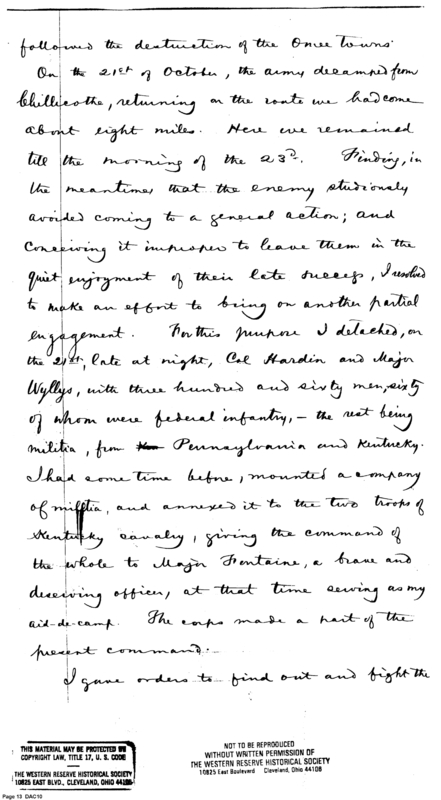 followed the destruction of the Omee Towns
On the 21st of October, the army decamped from
Chillicothe, returning on the route we had come
about eight miles. Here we remained
till the morning of the 23d. Finding, in
the meantime, that the enemy studiously
avoided coming to a general action; and
conceiving it improper to leave them in the
quiet enjoyment of their late success, I resolved
to make an effort to bring on another partial
engagement. For this purpose I detached, on
the 21st, late at night, Col Hardin and Major
Wyllys, with three hundred and sixty men, sixty
of whom were federal infantry, – the rest being
militia, from Pennsylvania and Kentucky.
I had some time before, mounted a company
of militia, and annexed it to the two troops of
Kentucky cavalry, giving the command of
the whole to Major Fontaine, a brave and
deserving officer, at that time serving as my
aid-de-camp. The corps made a part of the
present command. –
I gave orders to find out and fight the
THIS MATERIAL MAY BE PROTECTED BY
COPYRIGHT LAW, TITLE 17, U. S. CODE
THE WESTERN RESERVE HISTORICAL SOCIETY
10825 EAST BLVD., CLEVELAND, OHIO 44106
NOT TO BE REPRODUCED
WITHOUT WRITTEN PERMISSION OF
THE WESTERN RESERVE HISTORICAL SOCIETY
10825 East Boulevard Cleveland, Ohio 44106
Page 13 DAC10